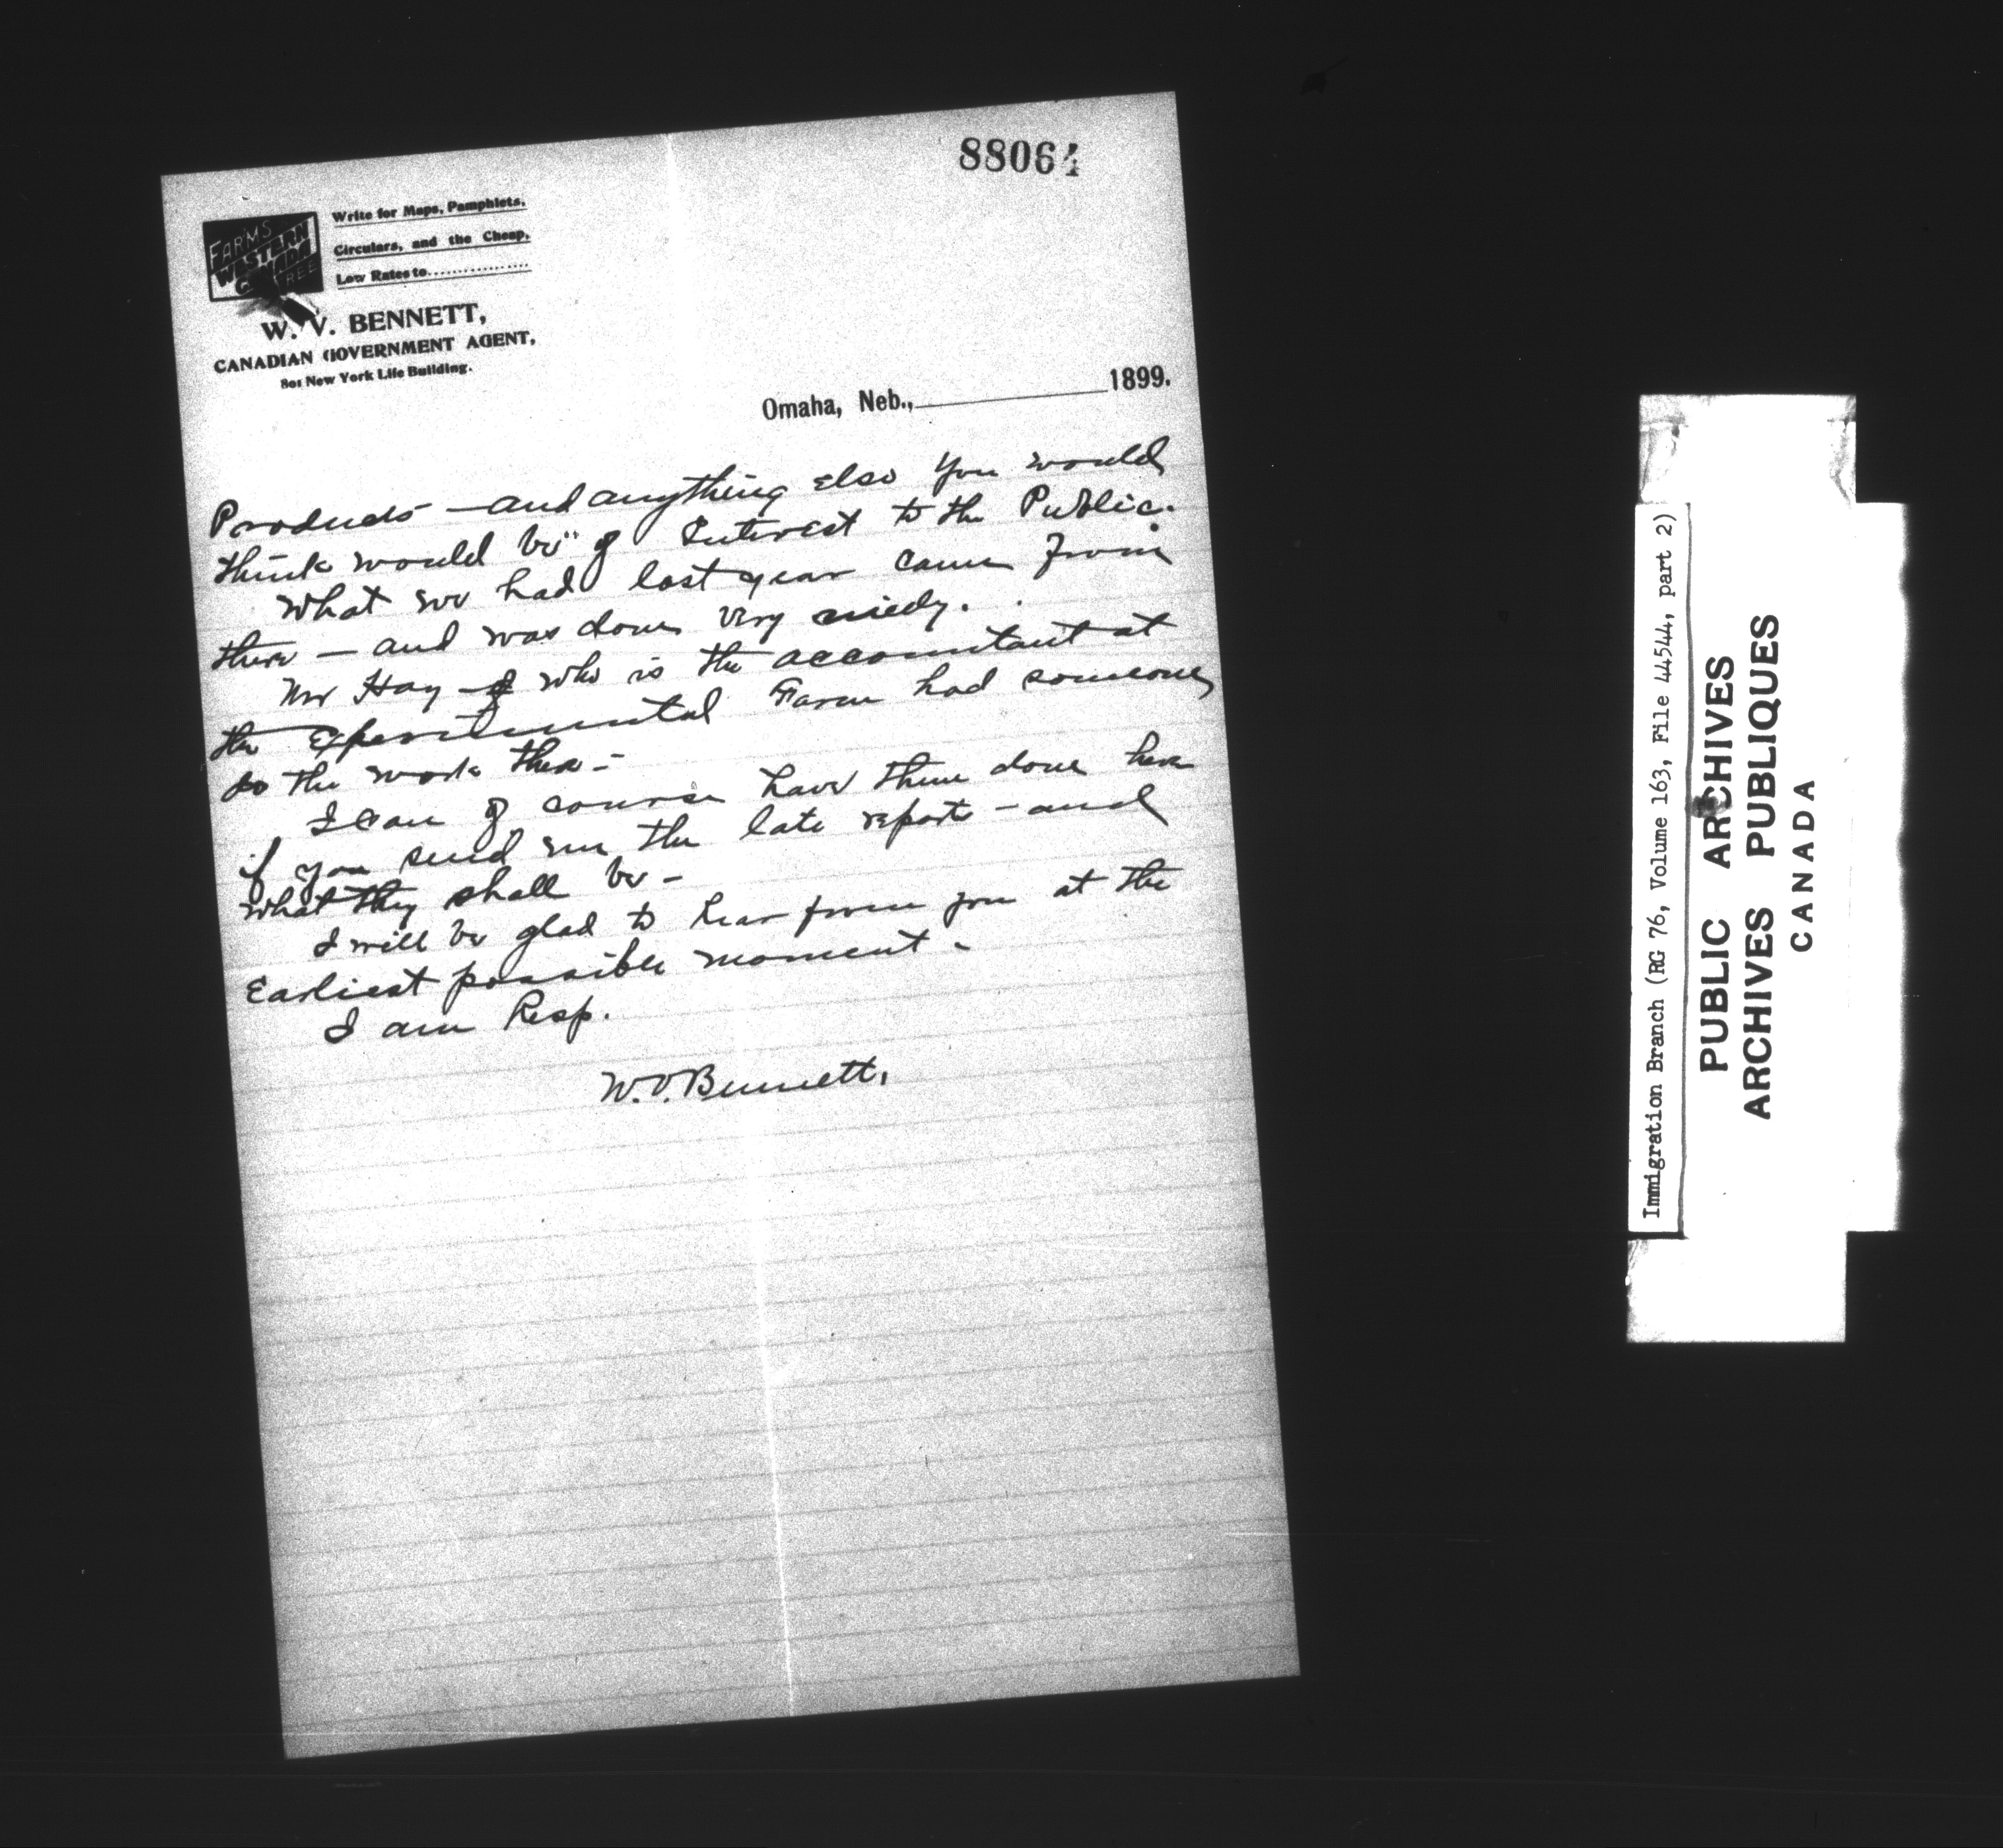 88064
FARMS
WESTERN
CANADA
FREE
Write for Maps, Pamphlets,
Circulars, and the Cheap,
Low Rates to................
W. V. BENNETT,
CANADIAN GOVERNMENT AGENT,
801 New York Life Building.
Omaha, Neb., 1899.
Products — and anything else you would
think would be" of Interest to the Public.
What we had last year came from
there — and was done very nicely.
Mr Hay who is the accountant at
the Experimental Farm had someone
do the work there -
I can of course have them done here
if you send me the late reports - and
what they shall be -
I will be glad to hear from you at the
Earliest possible moment -
I am Resp.
W.V. Bennett.
Immigration Branch (RG 76, Volume 163, File 44544, part 2)
PUBLIC ARCHIVES
ARCHIVES PUBLIQUES
CANADA